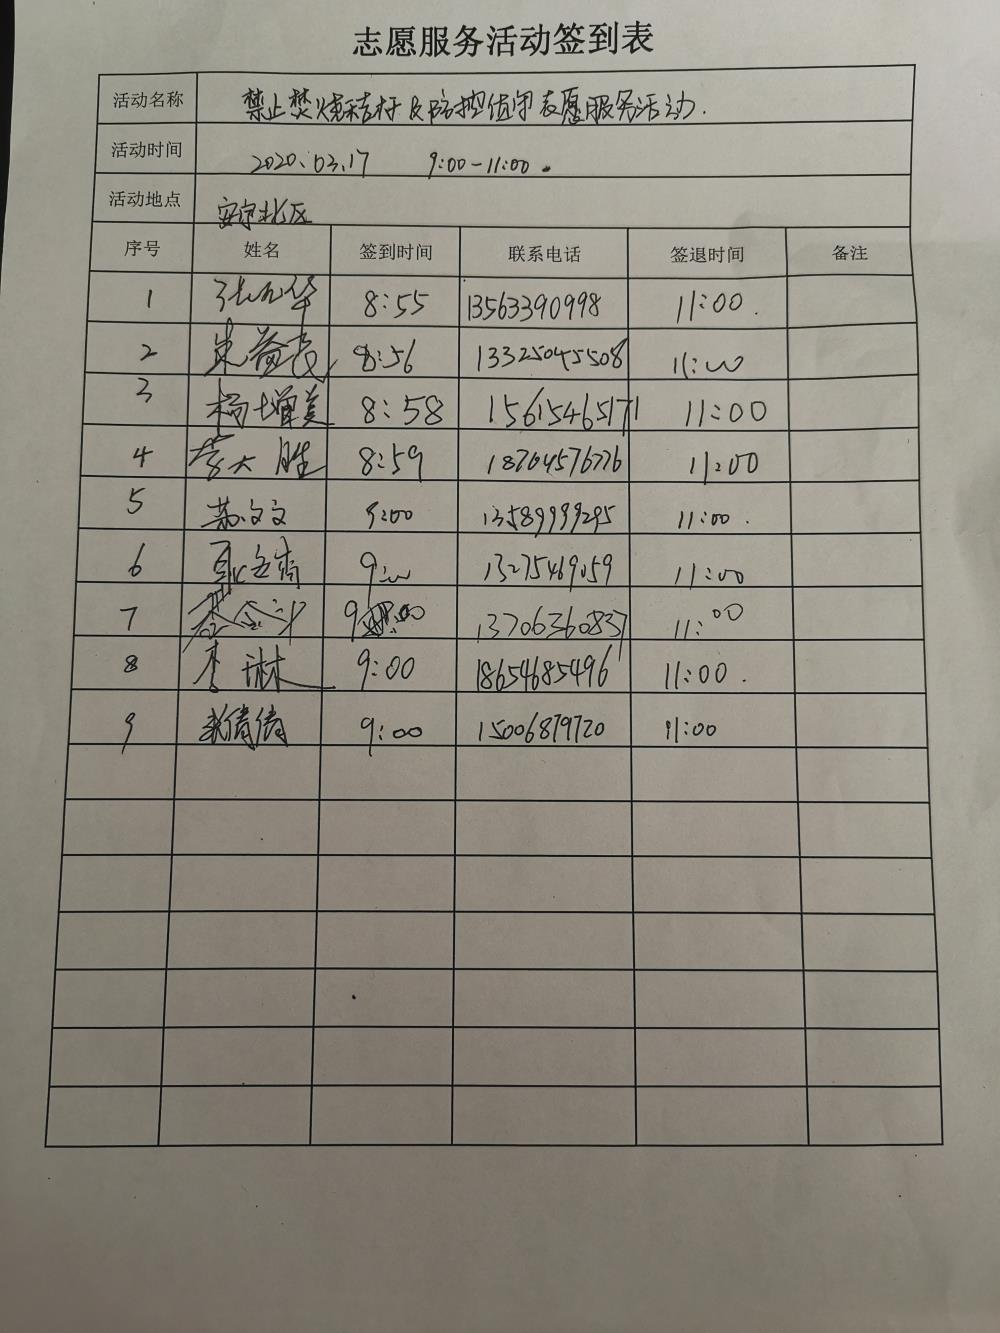 志愿服务活动签到表
活动名称 禁止焚烧秸秆及防控值守志愿服务活动.
活动时间 2020.03.17 9:00-11:00.
活动地点 安宁北区
序号 姓名 签到时间 联系电话 签退时间 备注
1 8:55 13563390998 11:00.
2 8:56 13325045508 11:00
3 杨增美 8:58 15615465171 11:00
4 李大胜 8:59 18704576776 11:00
5 苏文文 9:00 13589999295 11:00.
6 9:00 13275469059 11:00
7 9:00 13706360837 11:00
8 李琳 9:00 18654685496 11:00.
9 倩倩 9:00 15006879720 11:00